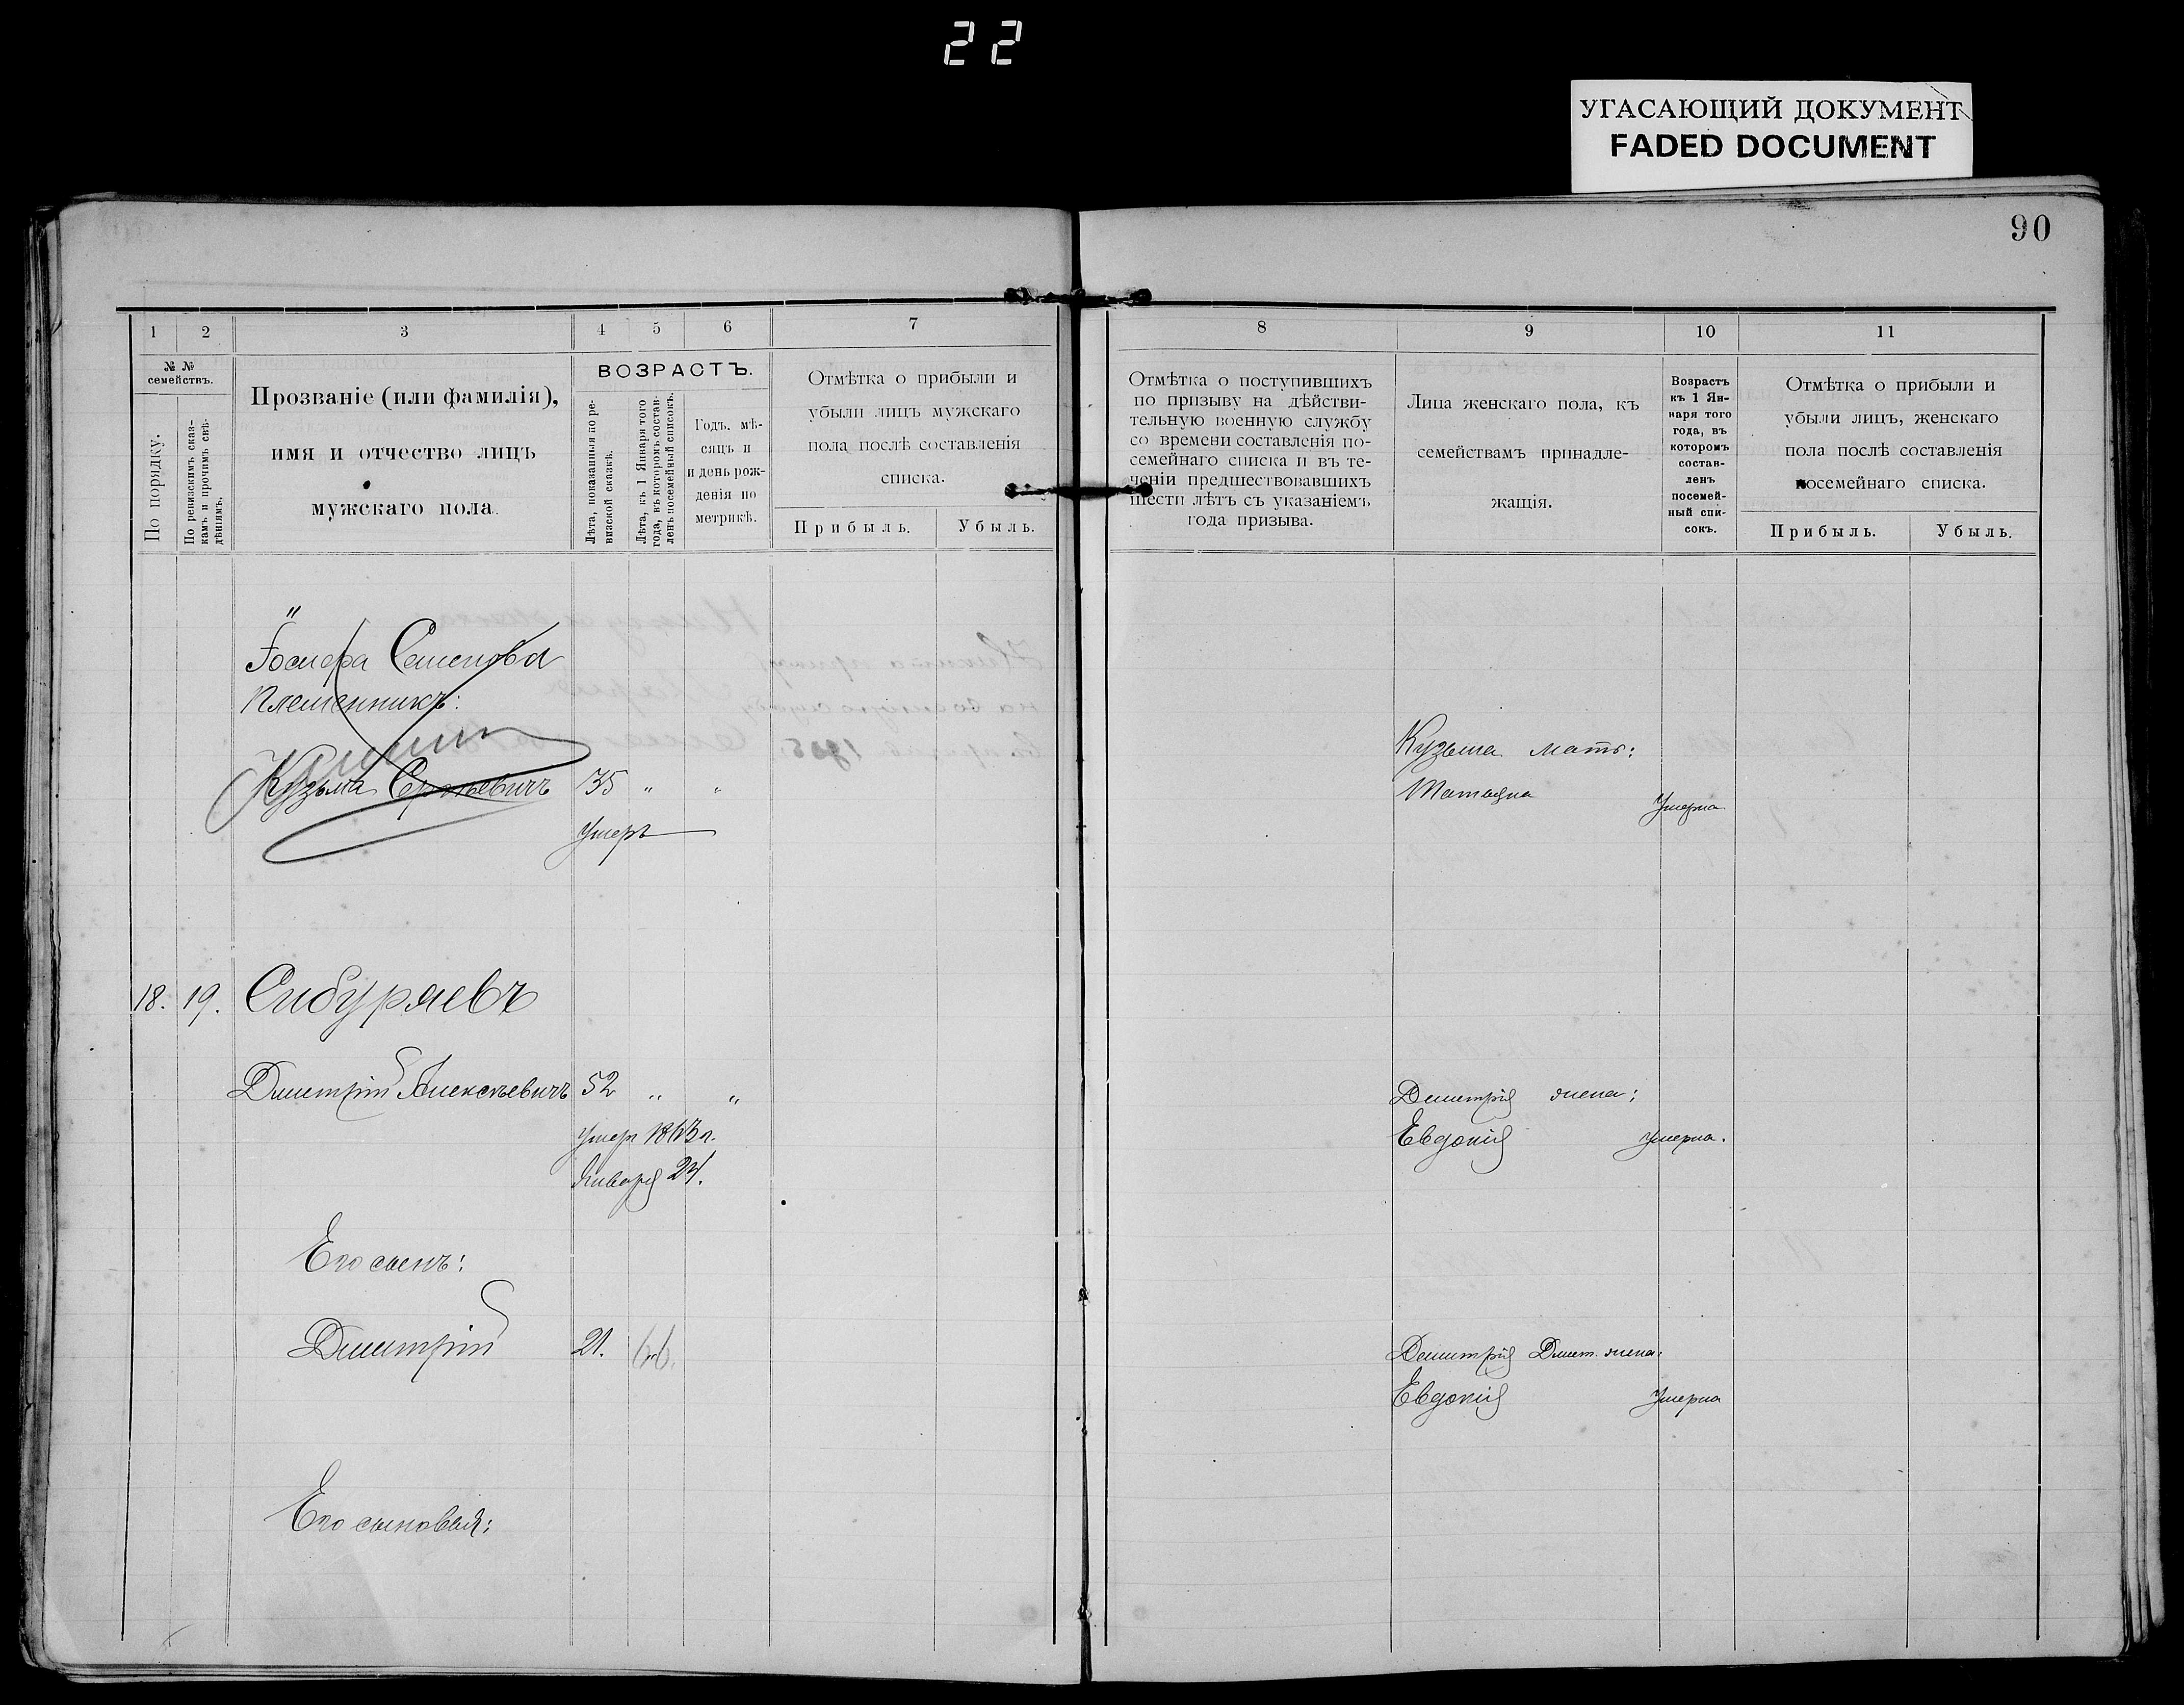 22
УГАСАЮЩИЙ ДОКУМЕНТ
FADED DOCUMENT
90
1 2 3 4 5 6 7
№ №
семействъ.
По порядку.
По ревизскимъ сказ-
камъ и прочимъ свѣ-
дѣніямъ.
Прозваніе (или фамилія),
имя и отчество лицъ
мужскаго пола.
ВОЗРАСТЪ.
Лѣта, показанныя по ре-
визской сказкѣ.
Лѣта, къ 1 Января того
года, въ которомъ состав-
ленъ посемейный списокъ.
Годъ, мѣ-
сяцъ и
и день рож-
денія по
метрикѣ.
Отмѣтка о прибыли и
убыли лицъ мужскаго
пола послѣ составленія
списка.
Прибыль. Убыль.
"
Іосифа Семенова
племенникъ:
Кузьма Сергѣевичъ 35 " "
умеръ
18. 19. Сибуряевъ
Дмитрій Алексѣевичъ 52 " "
умеръ
Января 24.
Его сынъ:
Дмитрій 21. 66.
Его сыновья:
8 9 10 11
Отмѣтка о поступившихъ
по призыву на дѣйстви-
тельную военную службу
со времени составленія по-
семейнаго списка и въ те-
ченіи предшествовавшихъ
шести лѣтъ съ указаніемъ
года призыва.
Лица женскаго пола, къ
семействамъ принадле-
жащія.
Возрастъ
къ 1 Ян-
варя того
года, въ
которомъ
состав-
ленъ
посемей-
ный спи-
сокъ.
Отмѣтка о прибыли и
убыли лицъ, женскаго
пола послѣ составленія
посемейнаго списка.
Прибыль. Убыль.
Кузьма мать:
Татьяна умерла
Дмитрія жена:
Евдокія умерла.
Дмитрія Дмит. жена:
Евдокія умерла